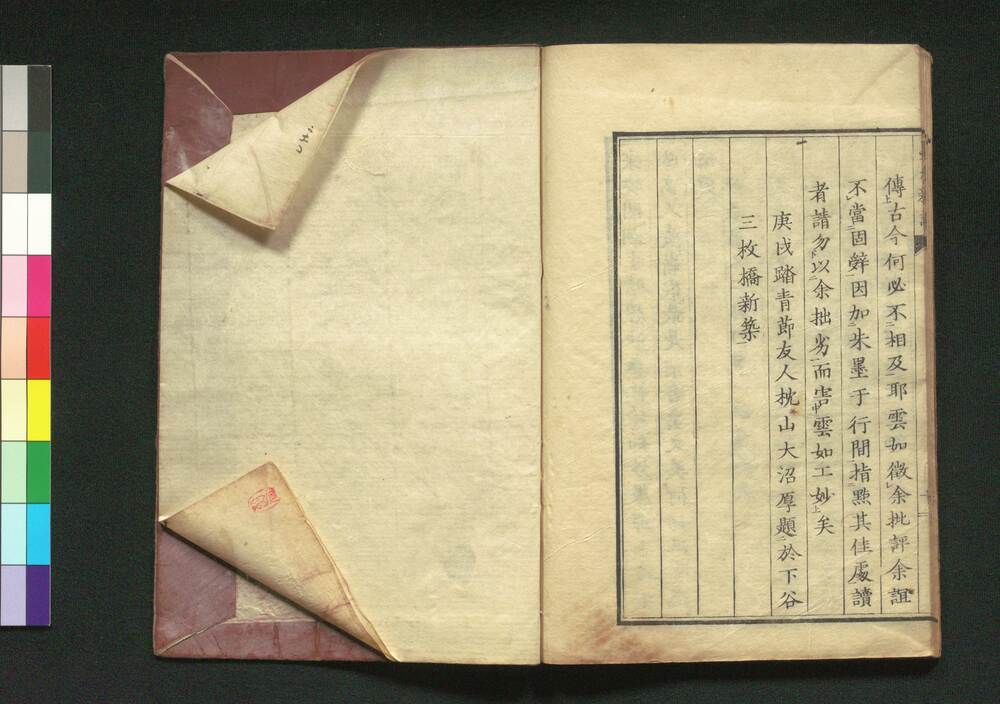 傳古今何必不相及耶雲如徵余批評余誼
不當固辭因加朱墨于行間指點其佳處讀
者請勿以余拙劣而害雲如工妙矣
庚戌踏青節友人枕山大沼厚題於下谷
三枚橋新築